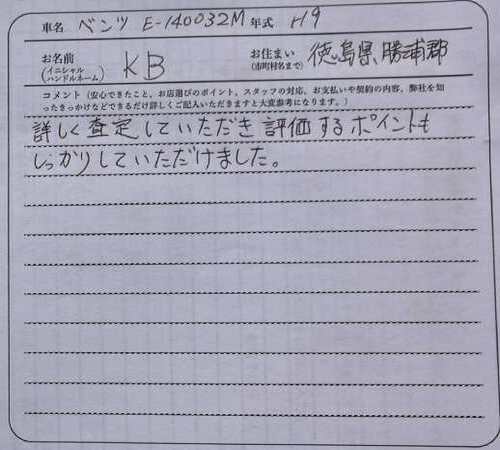 車名 ベンツ E-140032M 年式 H9
お名前 (イニシャル ハンドルネーム) KB お住まい (市町村名まで) 徳島県勝浦郡
コメント（安心できたこと、お店選びのポイント、スタッフの対応、お支払いや契約の内容、弊社を知
ったきっかけなどできるだけ詳しくご記入いただきますと大変参考になります。）
詳しく査定していただき評価するポイントも
しっかりしていただけました。